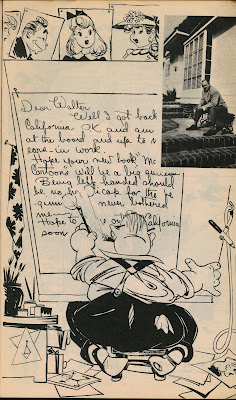 Dear Walter
Well I got back
California OK and am
at the board and up to s
ears in work.
Hope your new book "Mc
Cartoons will be a big
Being left handed should
be no han icap for the
never bothered
me—
Hope to California
soon